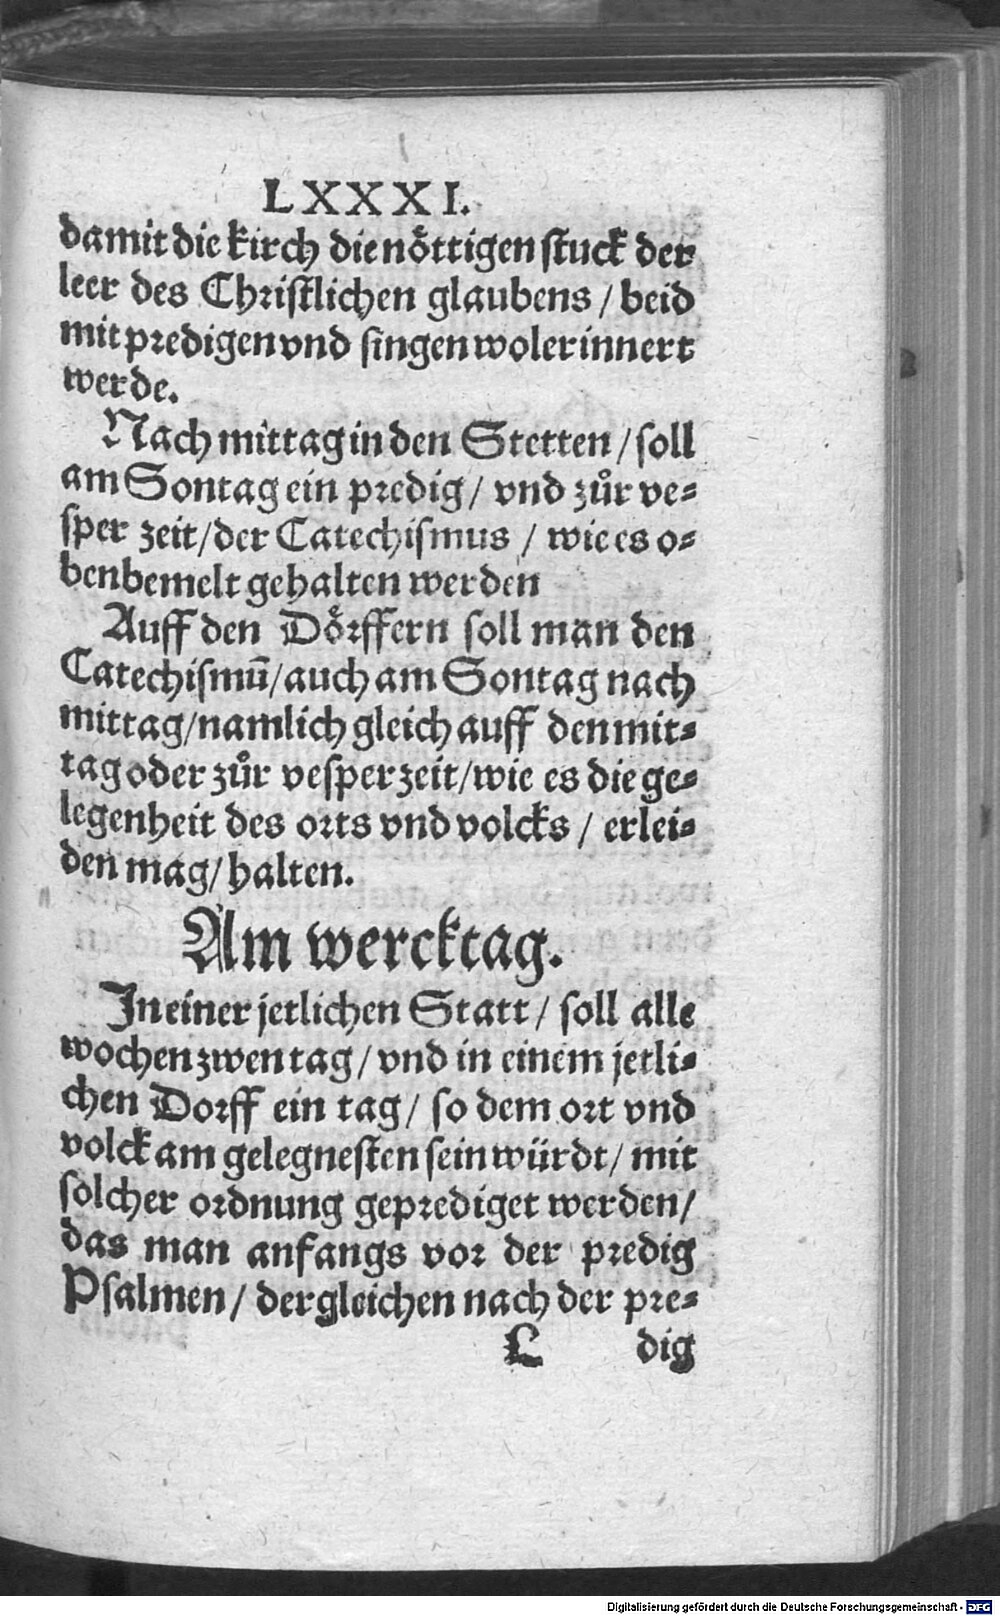 LXXXI.
damit die kirch die nöttigen stuck der
leer des Christlichen glaubens / beid
mit predigen vnd singen wol erinnert
werde.
Nach mittag in den Stetten / soll
am Sontag ein predig / vnd zůr ve-
sper zeit / der Catechismus / wie es o-
benbemelt gehalten werden
Auff den Dörffern soll man den
Catechismū / auch am Sontag nach
mittag / namlich gleich auff den mit-
tag oder zůr vesper zeit / wie es die ge-
legenheit des orts vnd volcks / erlei-
den mag / halten.
Am wercktag.
In einer jetlichen Statt / soll alle
wochen zwen tag / vnd in einem jetli-
chen Dorff ein tag / so dem ort vnd
volck am gelegnesten sein würdt / mit
solcher ordnung geprediget werden /
das man anfangs vor der predig
Psalmen / dergleichen nach der pre-
L dig
Digitalisierung gefördert durch die Deutsche Forschungsgemeinschaft - DFG